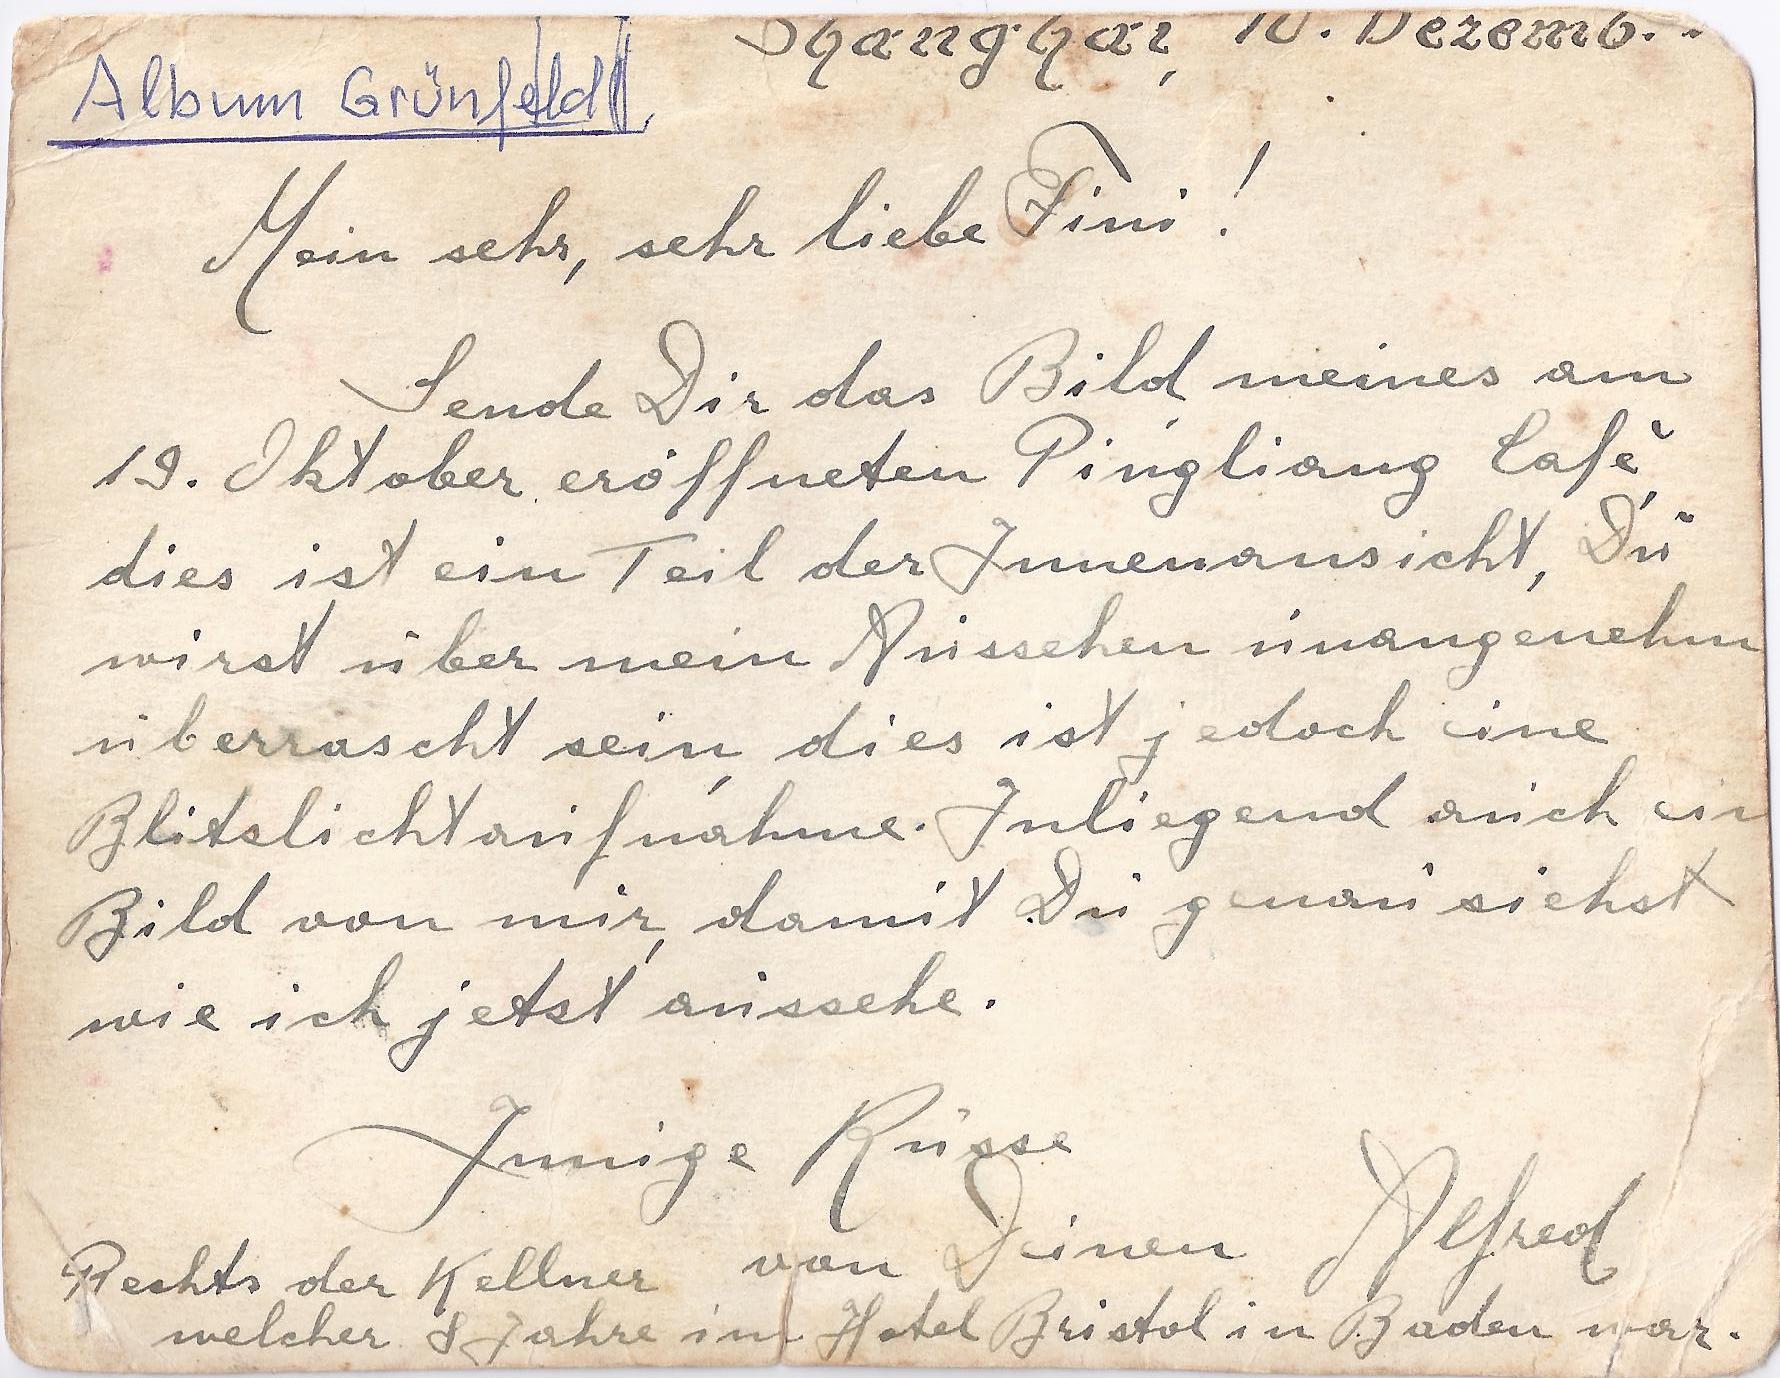 Shanghai, 10. Dezemb.
Album Grünfeld
Mein sehr, sehr liebe Fini!
Sende Dir das Bild meines am
19. Oktober eröffneten Pingliang Café,
dies ist ein Teil der Innenansicht, Du
wirst über mein Aussehen unangenehm
überrascht sein, dies ist jedoch eine
Blitslichtaufnahme. Inliegend auch ein
Bild von mir, damit Du genau siehst
wie ich jetst aussehe.
Innige Küsse
von Deinen Alfred
Rechts der Kellner
welcher 8 Jahre im Hotel Bristol in Baden war.